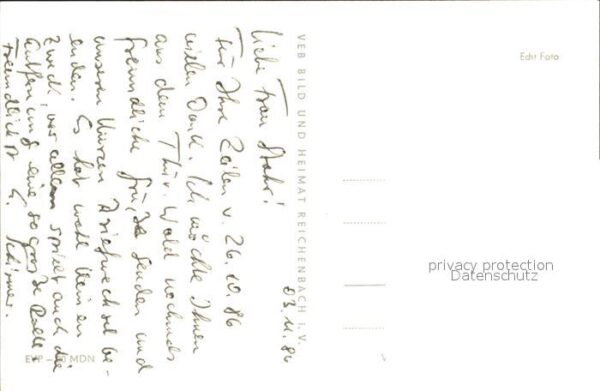 03.11.86
Liebe Frau Stahr!
Für Ihre Zeilen v. 26.10.86
vielen Dank. Ich möchte Ihnen
aus dem Thür. Wald nochmals
freundliche Grüße senden und
unseren kurzen Briefwechsel be-
enden. Es hat wohl keinen
Zweck, vor allem spielt auch die
Entfernung eine so große Rolle.
Freundlichst G. Schirmer.
VEB BILD UND HEIMAT REICHENBACH I. V.
Echt Foto
privacy protection
Datenschutz
EVP – MDN